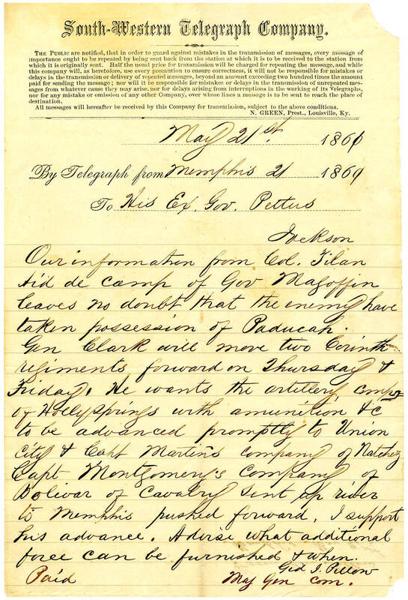 South-Western Telegraph Company.
THE PUBLIC are notified, that in order to guard against mistakes in the transmission of messages, every message of
importance ought to be repeated by being sent back from the station at which it is to be received to the station from
which it is originally sent. Half the usual price for transmission will be charged for repeating the message, and while
this company will, as heretofore, use every precaution to ensure correctness, it will not be responsible for mistakes or
delays in the transmission or delivery of repeated messages, beyond an amount exceeding two hundred times the amount
paid for sending the message; nor will it be responsible for mistakes or delays in the transmission of unrepeated mes-
sages from whatever cause they may arise, nor for delays arising from interruptions in the working of its Telegraphs,
nor for any mistake or omission of any other Company, over whose lines a message is to be sent to reach the place of
destination.
All messages will hereafter be received by this Company for transmission, subject to the above conditions.
N. GREEN, Prest., Louisville, Ky.
May 21st. 1861
By Telegraph from Memphis 21 1861
To His Ex. Gov. Pettus
Jackson
Our information from Col. Tilan
Aid de camp of Gov Magoffin
leaves no doubt that the enemy have
taken possession of Paducah.
Gen Clark will move two Corinth
regiments forward on Thursday &
Friday. He wants the artillery compy
of Hollysprings with amunition &c
to be advanced promptly to Union
City & Capt Martins company of Natchez
Capt Montgomery's Company of
Bolivar of Cavalry sent up river
to Memphis pushed forward. I support
his advance. Advise what additional
force can be furnished & when.
Gid J. Pillow
Paid Maj Gen com.